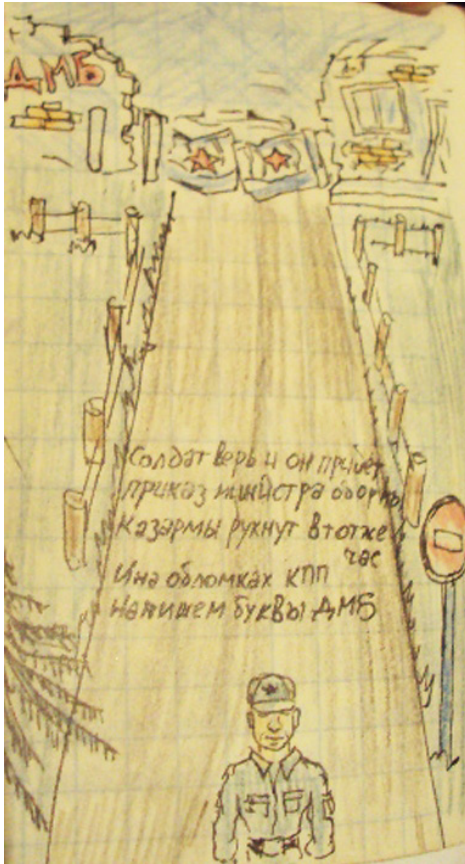 ДМБ
Солдат верь и он придет
приказ министра оборны
казармы рухнут в тот же
час
И на обломках КПП
напишем буквы ДМБ